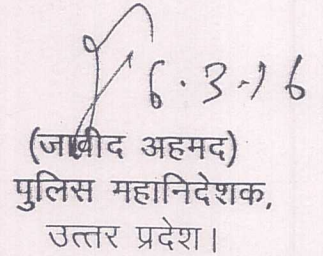 6.3.16
(जावीद अहमद)
पुलिस महानिदेशक,
उत्तर प्रदेश।